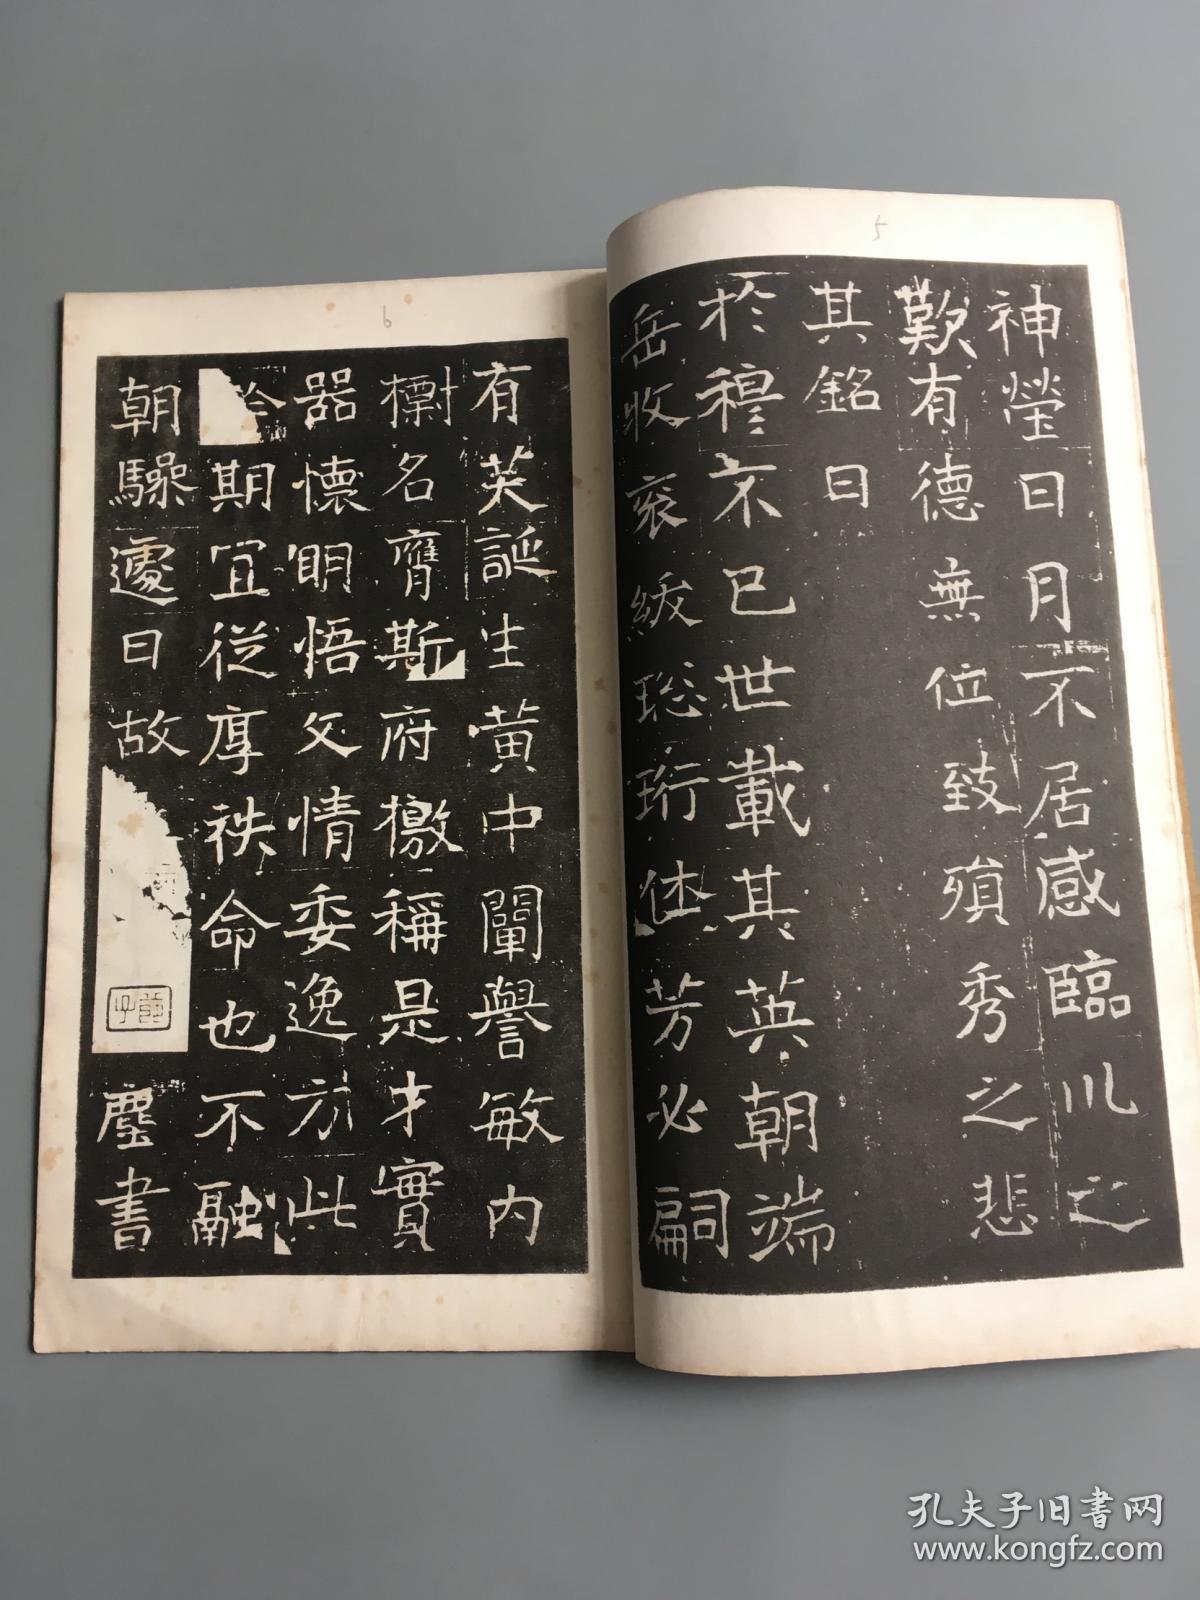 5
神瑩日月不居感臨川之
歎有德無位致殞秀之悲
其銘曰
於穆不已世載其英朝端
岳收袞紱珩芳必嗣
6
有芙誕生黃中闡譽敏內
名膺斯府檄稱是才實
器懷明悟文情委逸方此
期宜從厚秩命也不融
朝驂遽日故
塵書
孔夫子旧书网
www.kongfz.com